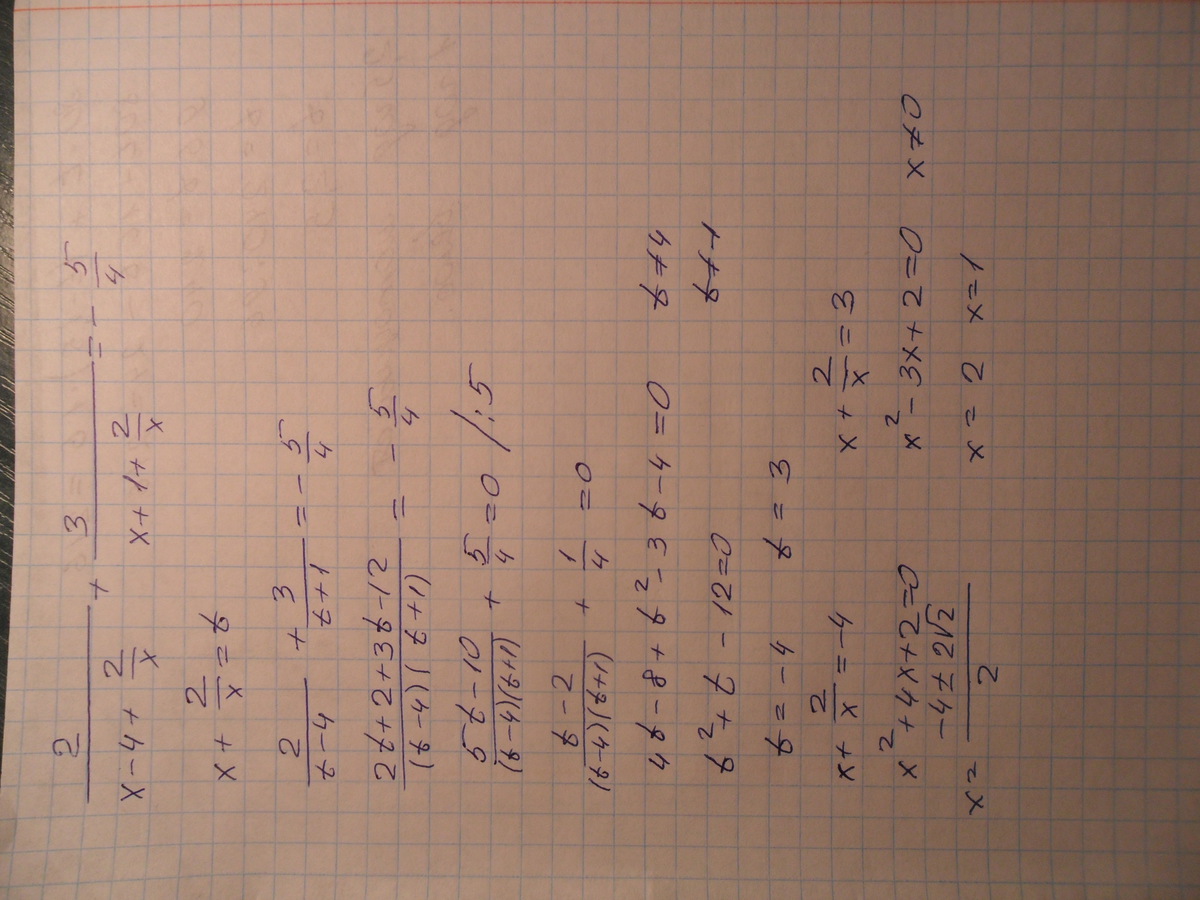 2/(x-4+2/x) + 3/(x+1+2/x) = -5/4
x+2/x=t
2/(t-4) + 3/(t+1) = -5/4
(2t+2+3t-12)/((t-4)(t+1)) = -5/4
(5t-10)/((t-4)(t+1)) + 5/4 = 0 /:5
(t-2)/((t-4)(t+1)) + 1/4 = 0
4t-8+t²-3t-4=0 t≠4
t²+t-12=0 t≠-1
t=-4 t=3
x+2/x=-4 x+2/x=3
x²+4x+2=0 x²-3x+2=0 x≠0
x=(-4±2√2)/2 x=2 x=1